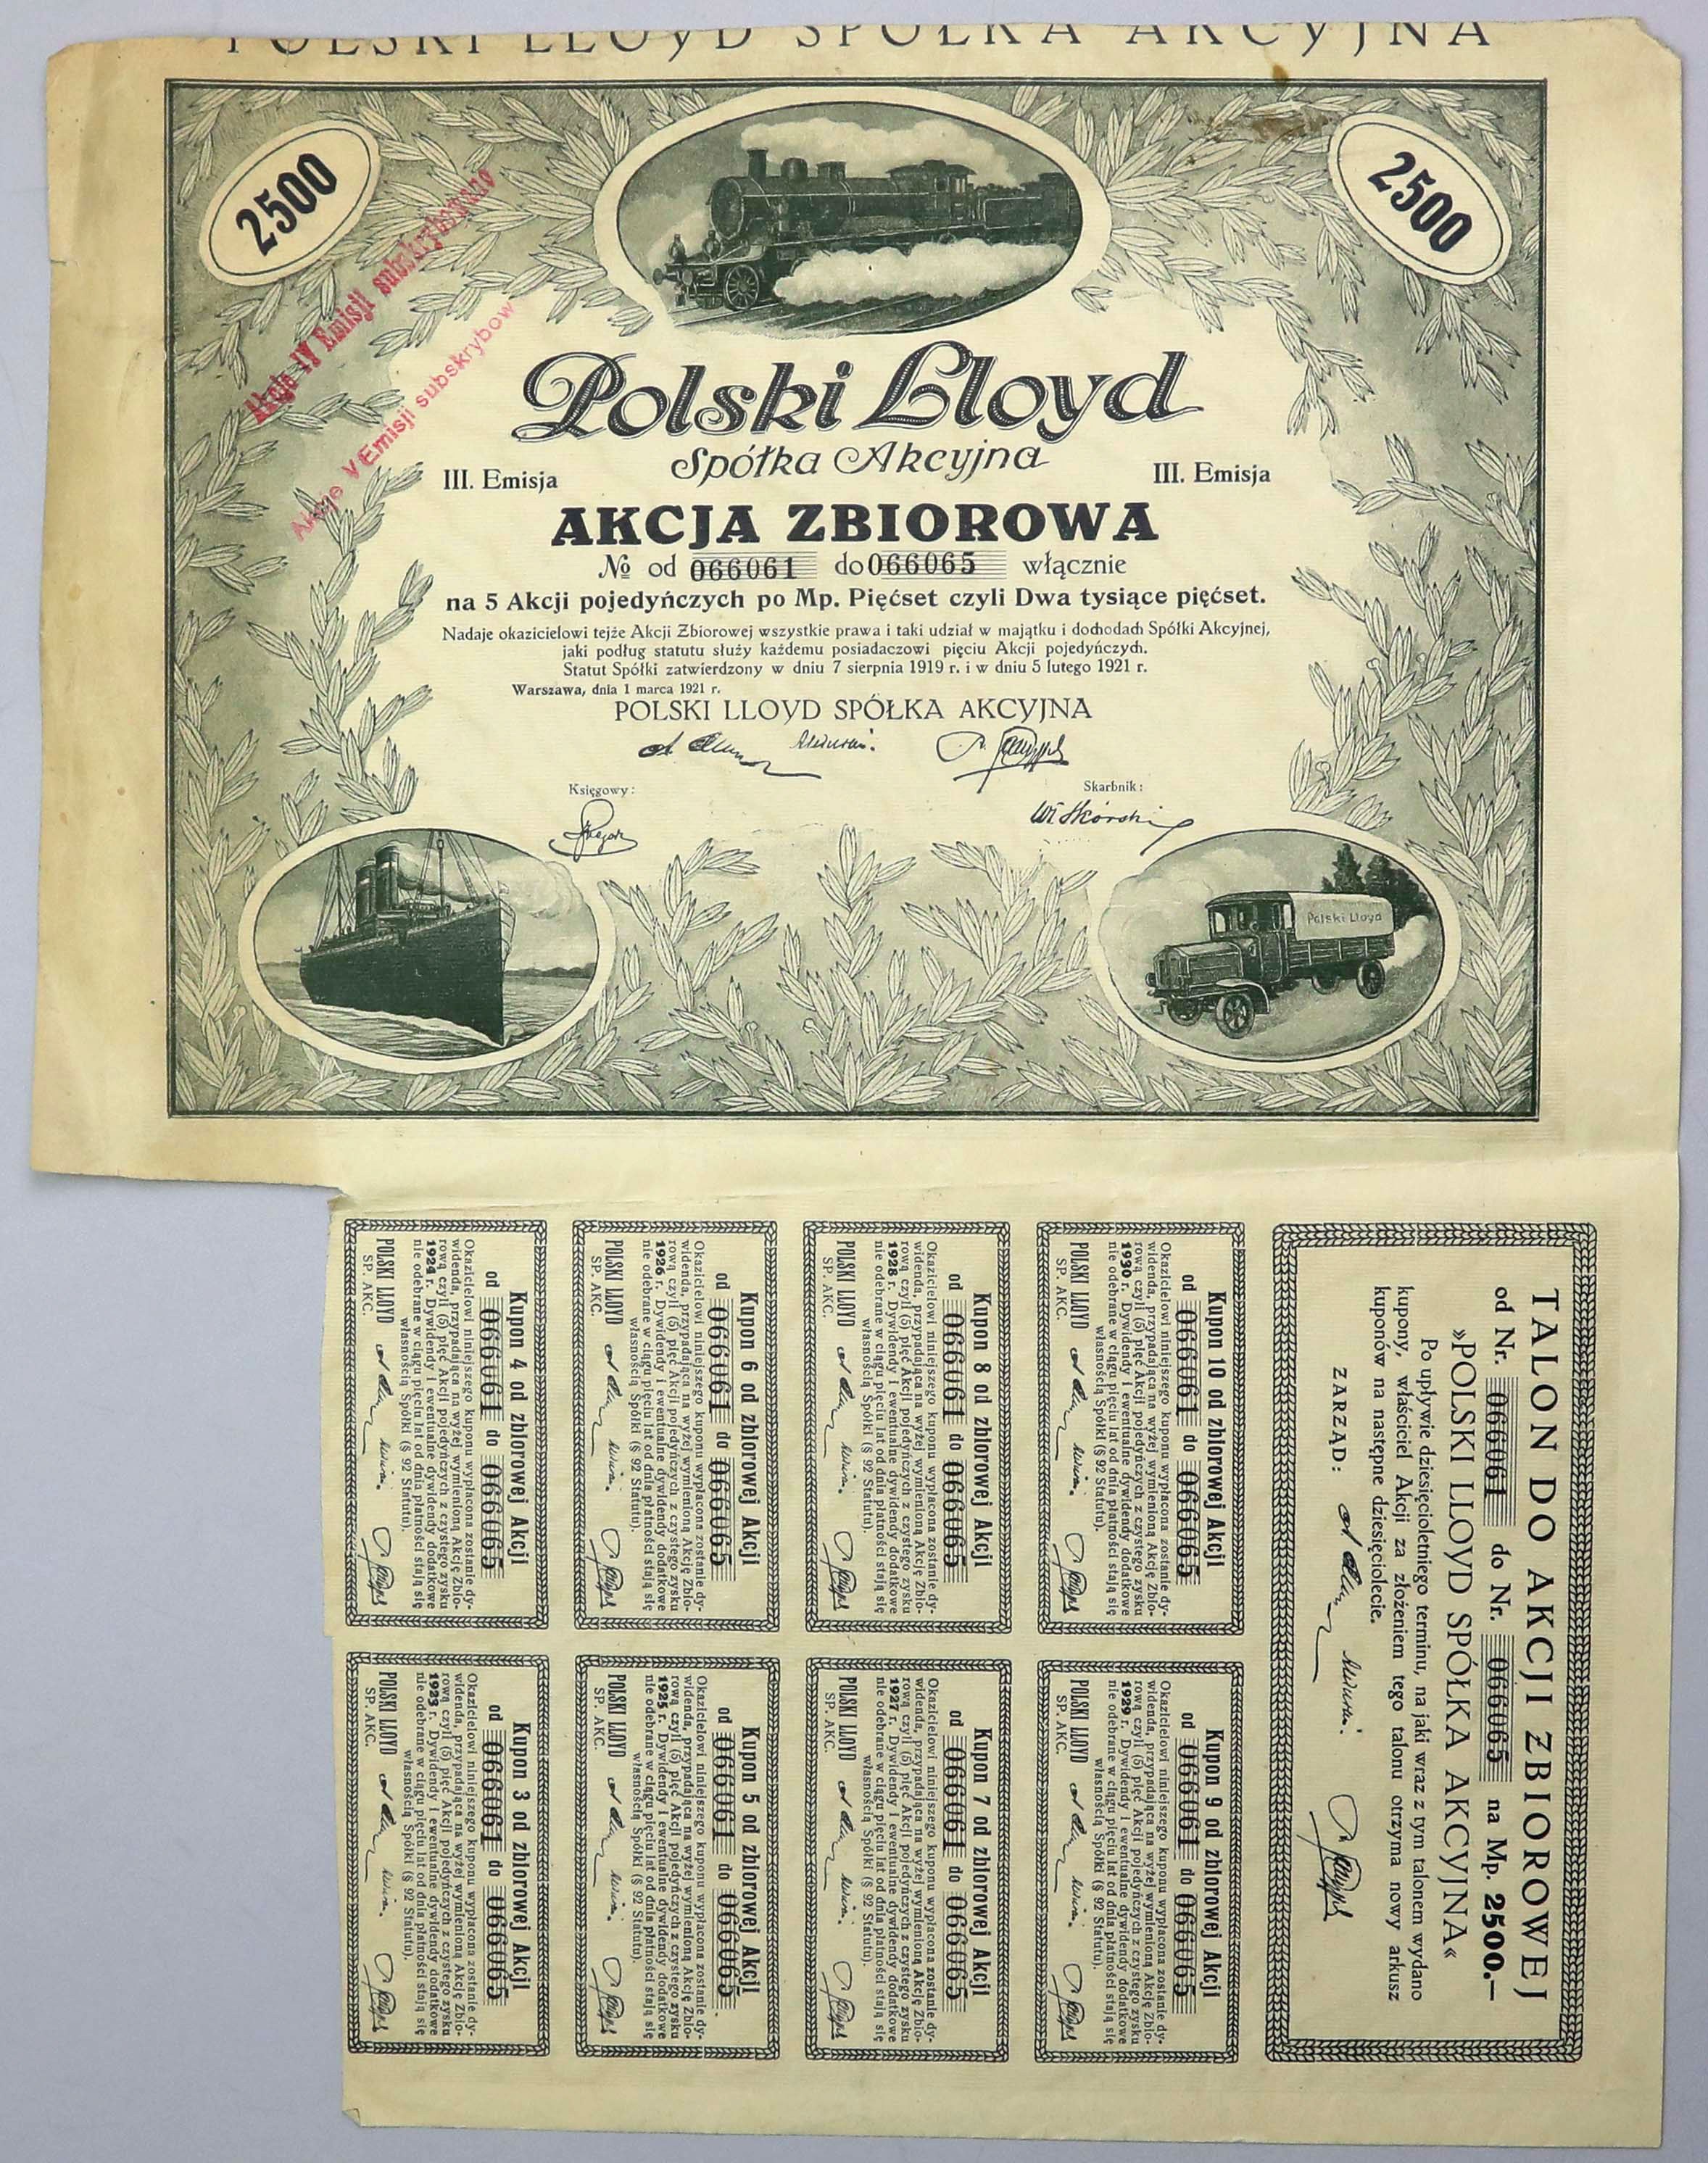 POLSKI LLOYD SPÓŁKA AKCYJNA
2500
2500
Akcje IV Emisji subskrybowano
Akcje V Emisji subskrybow
Polski Lloyd
Spółka Akcyjna
III. Emisja
III. Emisja
AKCJA ZBIOROWA
№ od 066061 do 066065 włącznie
na 5 Akcji pojedyńczych po Mp. Pięćset czyli Dwa tysiące pięćset.
Nadaje okazicielowi tejże Akcji Zbiorowej wszystkie prawa i taki udział w majątku i dochodach Spółki Akcyjnej,
jaki podług statutu służy każdemu posiadaczowi pięciu Akcji pojedyńczych.
Statut Spółki zatwierdzony w dniu 7 sierpnia 1919 r. i w dniu 5 lutego 1921 r.
Warszawa, dnia 1 marca 1921 r.
POLSKI LLOYD SPÓŁKA AKCYJNA
Księgowy:
Skarbnik:
Polski Lloyd
TALON DO AKCJI ZBIOROWEJ
od Nr. 066061 do Nr. 066065 na Mp. 2500.—
»POLSKI LLOYD SPÓŁKA AKCYJNA«
Po upływie dziesięcioletniego terminu, na jaki wraz z tym talonem wydano
kupony, właściciel Akcji za złożeniem tego talonu otrzyma nowy arkusz
kuponów na następne dziesięciolecie.
ZARZĄD:
Kupon 10 od zbiorowej Akcji
od 066061 do 066065
Okazicielowi niniejszego kuponu wypłacona zostanie dy-
widenda, przypadająca na wyżej wymienioną Akcję Zbio-
rową czyli (5) pięć Akcji pojedyńczych z czystego zysku
1930 r. Dywidendy i ewentualne dywidendy dodatkowe
nie odebrane w ciągu pięciu lat od dnia płatności stają się
własnością Spółki (§ 92 Statutu).
POLSKI LLOYD
SP. AKC.
Kupon 9 od zbiorowej Akcji
od 066061 do 066065
Okazicielowi niniejszego kuponu wypłacona zostanie dy-
widenda, przypadająca na wyżej wymienioną Akcję Zbio-
rową czyli (5) pięć Akcji pojedyńczych z czystego zysku
1929 r. Dywidendy i ewentualne dywidendy dodatkowe
nie odebrane w ciągu pięciu lat od dnia płatności stają się
własnością Spółki (§ 92 Statutu).
POLSKI LLOYD
SP. AKC.
Kupon 8 od zbiorowej Akcji
od 066061 do 066065
Okazicielowi niniejszego kuponu wypłacona zostanie dy-
widenda, przypadająca na wyżej wymienioną Akcję Zbio-
rową czyli (5) pięć Akcji pojedyńczych z czystego zysku
1928 r. Dywidendy i ewentualne dywidendy dodatkowe
nie odebrane w ciągu pięciu lat od dnia płatności stają się
własnością Spółki (§ 92 Statutu).
POLSKI LLOYD
SP. AKC.
Kupon 7 od zbiorowej Akcji
od 066061 do 066065
Okazicielowi niniejszego kuponu wypłacona zostanie dy-
widenda, przypadająca na wyżej wymienioną Akcję Zbio-
rową czyli (5) pięć Akcji pojedyńczych z czystego zysku
1927 r. Dywidendy i ewentualne dywidendy dodatkowe
nie odebrane w ciągu pięciu lat od dnia płatności stają się
własnością Spółki (§ 92 Statutu).
POLSKI LLOYD
SP. AKC.
Kupon 6 od zbiorowej Akcji
od 066061 do 066065
Okazicielowi niniejszego kuponu wypłacona zostanie dy-
widenda, przypadająca na wyżej wymienioną Akcję Zbio-
rową czyli (5) pięć Akcji pojedyńczych z czystego zysku
1926 r. Dywidendy i ewentualne dywidendy dodatkowe
nie odebrane w ciągu pięciu lat od dnia płatności stają się
własnością Spółki (§ 92 Statutu).
POLSKI LLOYD
SP. AKC.
Kupon 5 od zbiorowej Akcji
od 066061 do 066065
Okazicielowi niniejszego kuponu wypłacona zostanie dy-
widenda, przypadająca na wyżej wymienioną Akcję Zbio-
rową czyli (5) pięć Akcji pojedyńczych z czystego zysku
1925 r. Dywidendy i ewentualne dywidendy dodatkowe
nie odebrane w ciągu pięciu lat od dnia płatności stają się
własnością Spółki (§ 92 Statutu).
POLSKI LLOYD
SP. AKC.
Kupon 4 od zbiorowej Akcji
od 066061 do 066065
Okazicielowi niniejszego kuponu wypłacona zostanie dy-
widenda, przypadająca na wyżej wymienioną Akcję Zbio-
rową czyli (5) pięć Akcji pojedyńczych z czystego zysku
1924 r. Dywidendy i ewentualne dywidendy dodatkowe
nie odebrane w ciągu pięciu lat od dnia płatności stają się
własnością Spółki (§ 92 Statutu).
POLSKI LLOYD
SP. AKC.
Kupon 3 od zbiorowej Akcji
od 066061 do 066065
Okazicielowi niniejszego kuponu wypłacona zostanie dy-
widenda, przypadająca na wyżej wymienioną Akcję Zbio-
rową czyli (5) pięć Akcji pojedyńczych z czystego zysku
1923 r. Dywidendy i ewentualne dywidendy dodatkowe
nie odebrane w ciągu pięciu lat od dnia płatności stają się
własnością Spółki (§ 92 Statutu).
POLSKI LLOYD
SP. AKC.